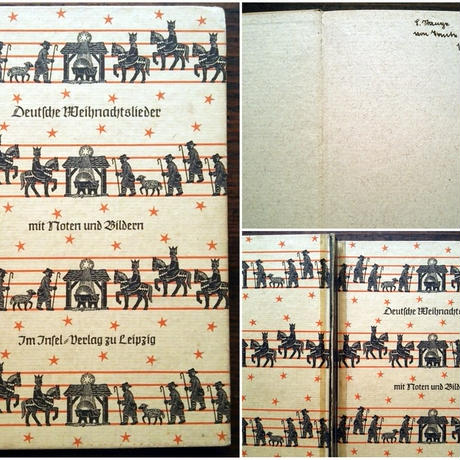 Deutsche Weihnachtslieder
mit Noten und Bildern
Im Insel-Verlag zu Leipzig
von
Deutsche Weihnachts
mit Noten und Bild